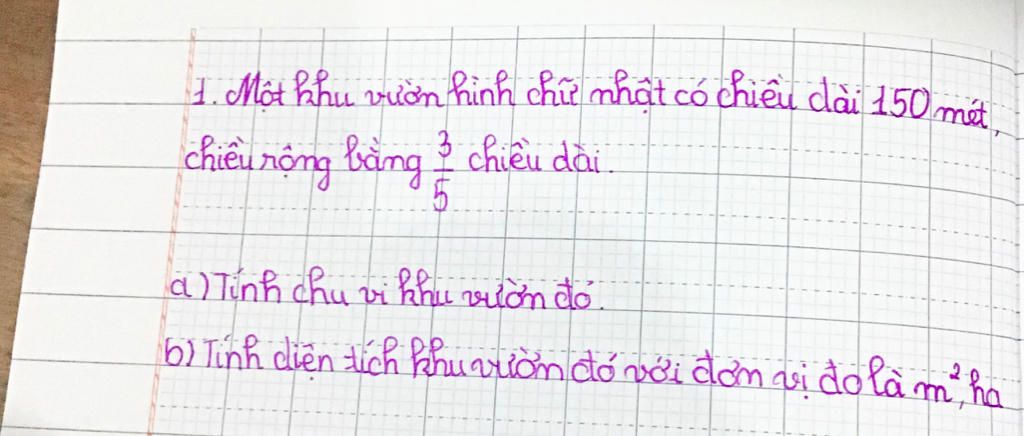 1. Một khu vườn hình chữ nhật có chiều dài 150 mét,
chiều rộng bằng 3/5 chiều dài.
a) Tính chu vi khu vườn đó.
b) Tính diện tích khu vườn đó với đơn vị đo là m², ha